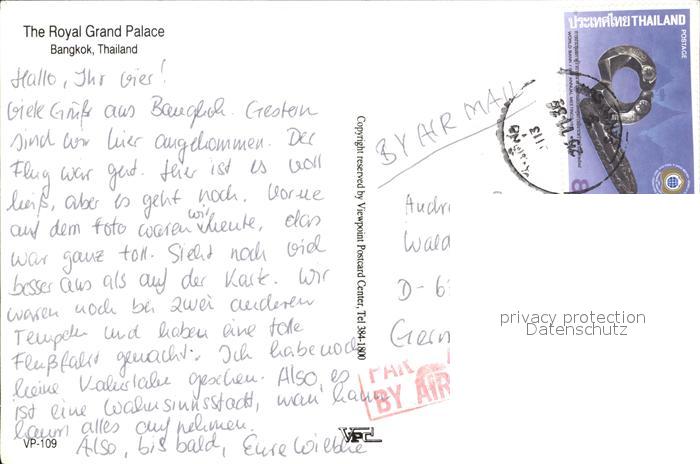 The Royal Grand Palace
Bangkok, Thailand
Hallo, Ihr vier!
Viele Grüße aus Bangkok. Gestern
sind wir hier angekommen. Der
Flug war gut. Hier ist es voll
heiß, aber es geht noch. Vorne
auf dem Foto waren wir heute, das
war ganz toll. Sieht noch viel
besser aus als auf der Karte. Wir
waren noch bei zwei anderen
Tempeln und haben eine tolle
Flußfahrt gemacht. Ich habe noch
keine gesehen. Also, es
ist eine Wahnsinnsstadt, man kann
kaum alles aufnehmen.
Also, bis bald, Eure
VP-109
Copyright reserved by Viewpoint Postcard Center, Tel 384-1800
VPC
BY AIR MAIL
ประเทศไทย THAILAND
POSTAGE
Wald
D-6
Germ
PAR
BY AIR
privacy protection
Datenschutz